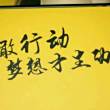 敢行动
梦想才生动